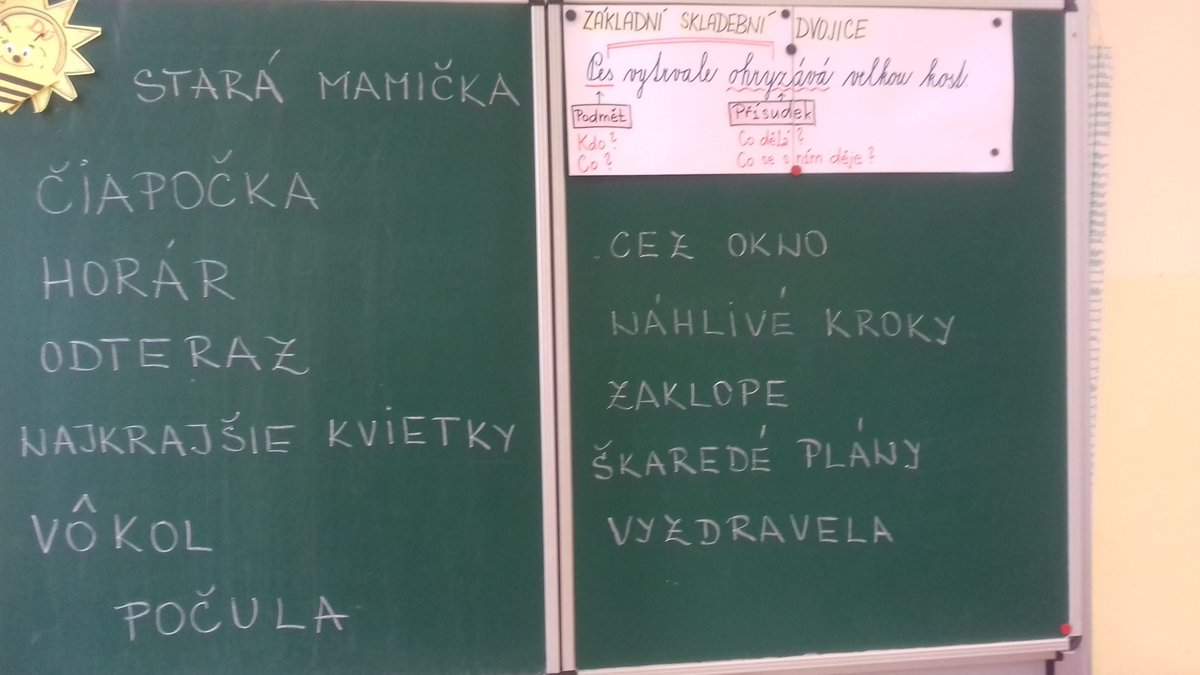 STARÁ MAMIČKA
ČIAPOČKA
HORÁR
ODTERAZ
NAJKRAJŠIE KVIETKY
VÔKOL
POČULA
ZÁKLADNÍ SKLADEBNÍ DVOJICE
Pes vytrvale ohryzává velkou kost.
Podmět Přísudek
Kdo? Co dělá?
Co? Co se s ním děje?
CEZ OKNO
NÁHLIVÉ KROKY
ZAKLOPE
ŠKAREDÉ PLÁNY
VYZDRAVELA